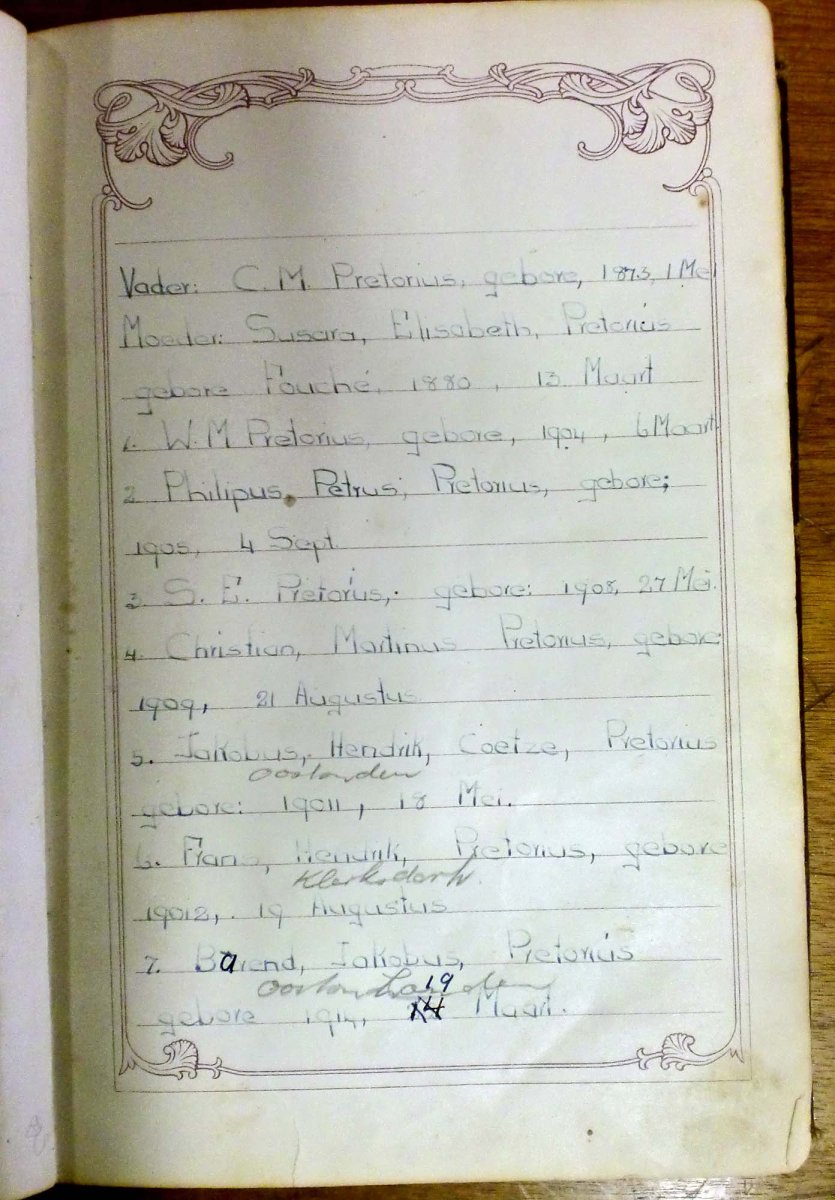 Vader: C. M. Pretorius, gebore, 1873, 1 Mei
Moeder: Susara, Elisabeth, Pretorius
gebore Fouché, 1880, 13 Maart
1. W. M Pretorius, gebore, 1904, 6 Maart
2 Philipus, Petrus, Pretorius, gebore;
1905, 4 Sept.
3 S. E. Pretorius, gebore: 1908, 27 Mei.
4. Christian, Martinus Pretorius, gebore
1909, 21 Augustus
5. Jakobus, Hendrik, Coetze, Pretorius
Oostonden
gebore: 19011, 18 Mei.
6. Frans, Hendrik, Pretorius, gebore
Klerksdorp.
19012, 19 Augustus
7. Barend, Jakobus, Pretorius
19
gebore 1914, Maart.